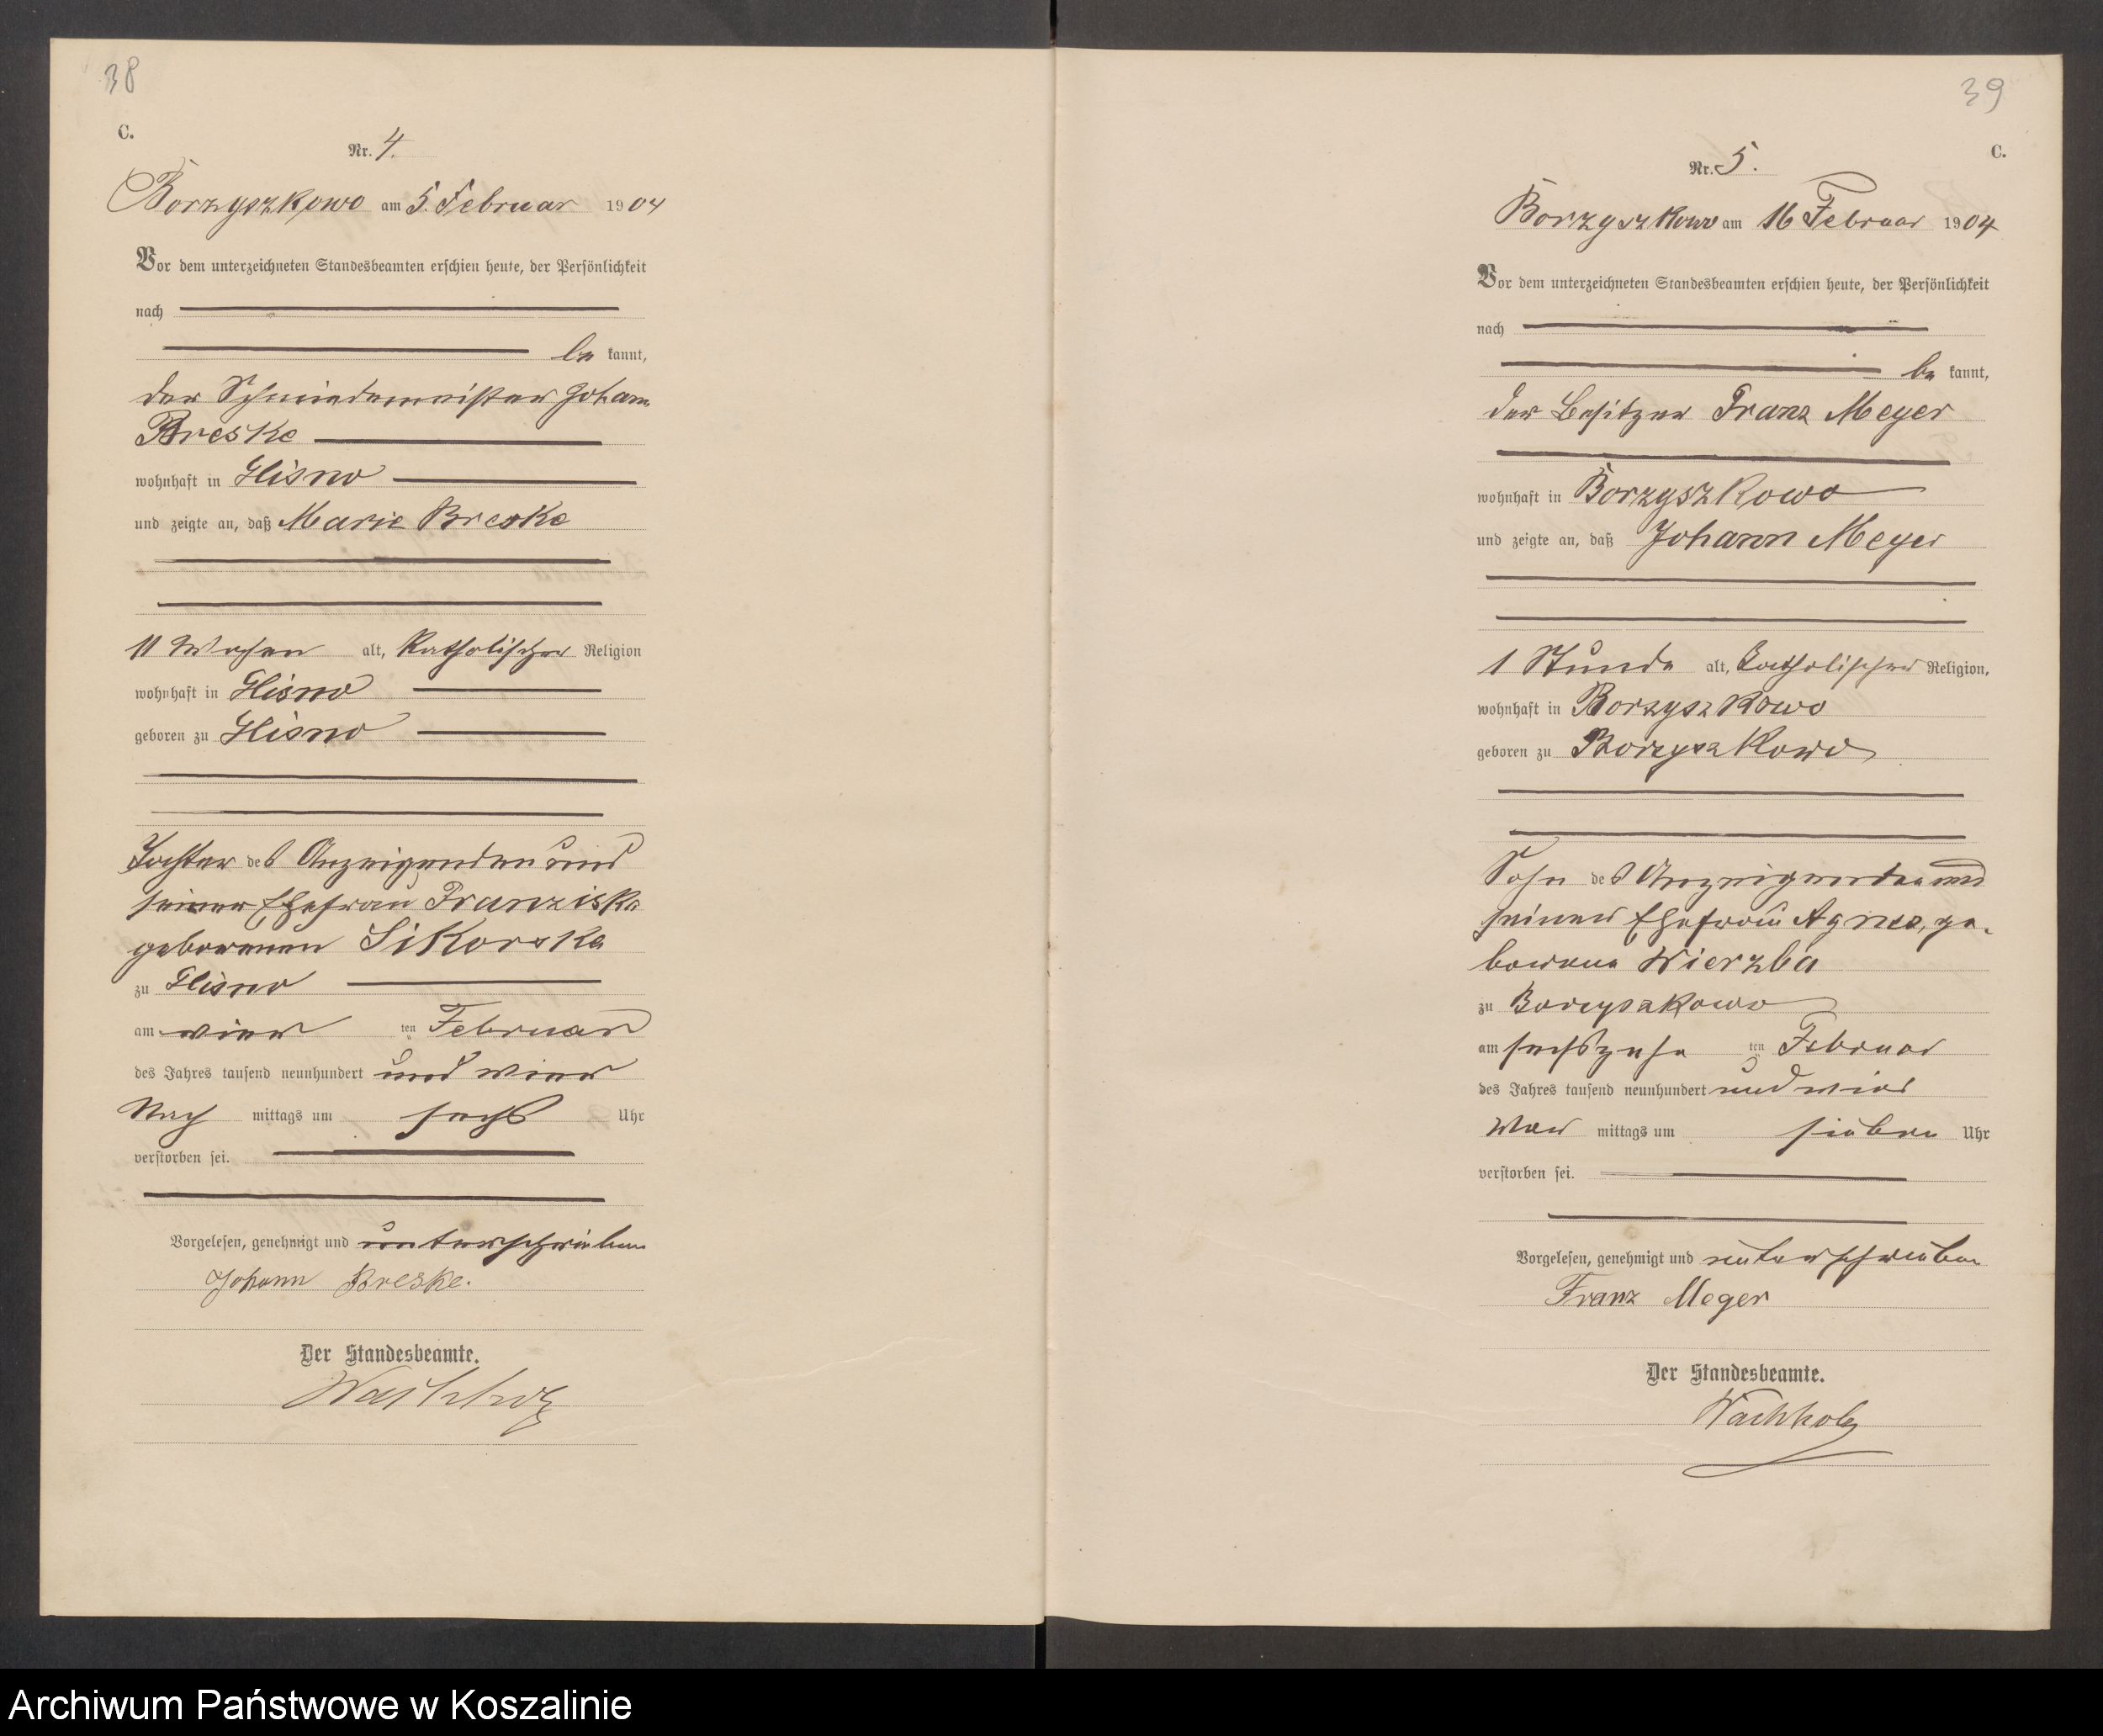 38
C.
Nr. 4.
Borzyszkowo am 5. Februar 1904
Vor dem unterzeichneten Standesbeamten erschien heute, der Persönlichkeit
nach
be kannt,
der Schmiedemeister Johann
Breske
wohnhaft in Glisno
und zeigte an, daß Marie Breske
11 Wochen alt, katholischer Religion
wohnhaft in Glisno
geboren zu Glisno
Tochter des Anzeigenden und
seiner Ehefrau Franziska
geborenen Sikorska
zu Glisno
am vier ten Februar
des Jahres tausend neunhundert und vier
Nach mittags um sechs Uhr
verstorben sei.
Vorgelesen, genehmigt und unterschrieben
Johann Breske.
Der Standesbeamte.
Wachholz
39
C.
Nr. 5.
Borzyszkowo am 16 Februar 1904
Vor dem unterzeichneten Standesbeamten erschien heute, der Persönlichkeit
nach
be kannt,
der Besitzer Franz Meyer
wohnhaft in Borzyszkowo
und zeigte an, daß Johann Meyer
1 Stunde alt, katholischer Religion,
wohnhaft in Borzyszkowo
geboren zu Borzyszkowo
Sohn des Anzeigenden und
seiner Ehefrau Agnes, ge-
borene Wierzba
zu Borzyszkowo
am sechszehn ten Februar
des Jahres tausend neunhundert und vier
Vor mittags um sieben Uhr
verstorben sei.
Vorgelesen, genehmigt und unterschrieben
Franz Meger
Der Standesbeamte.
Wachholz
Archiwum Państwowe w Koszalinie